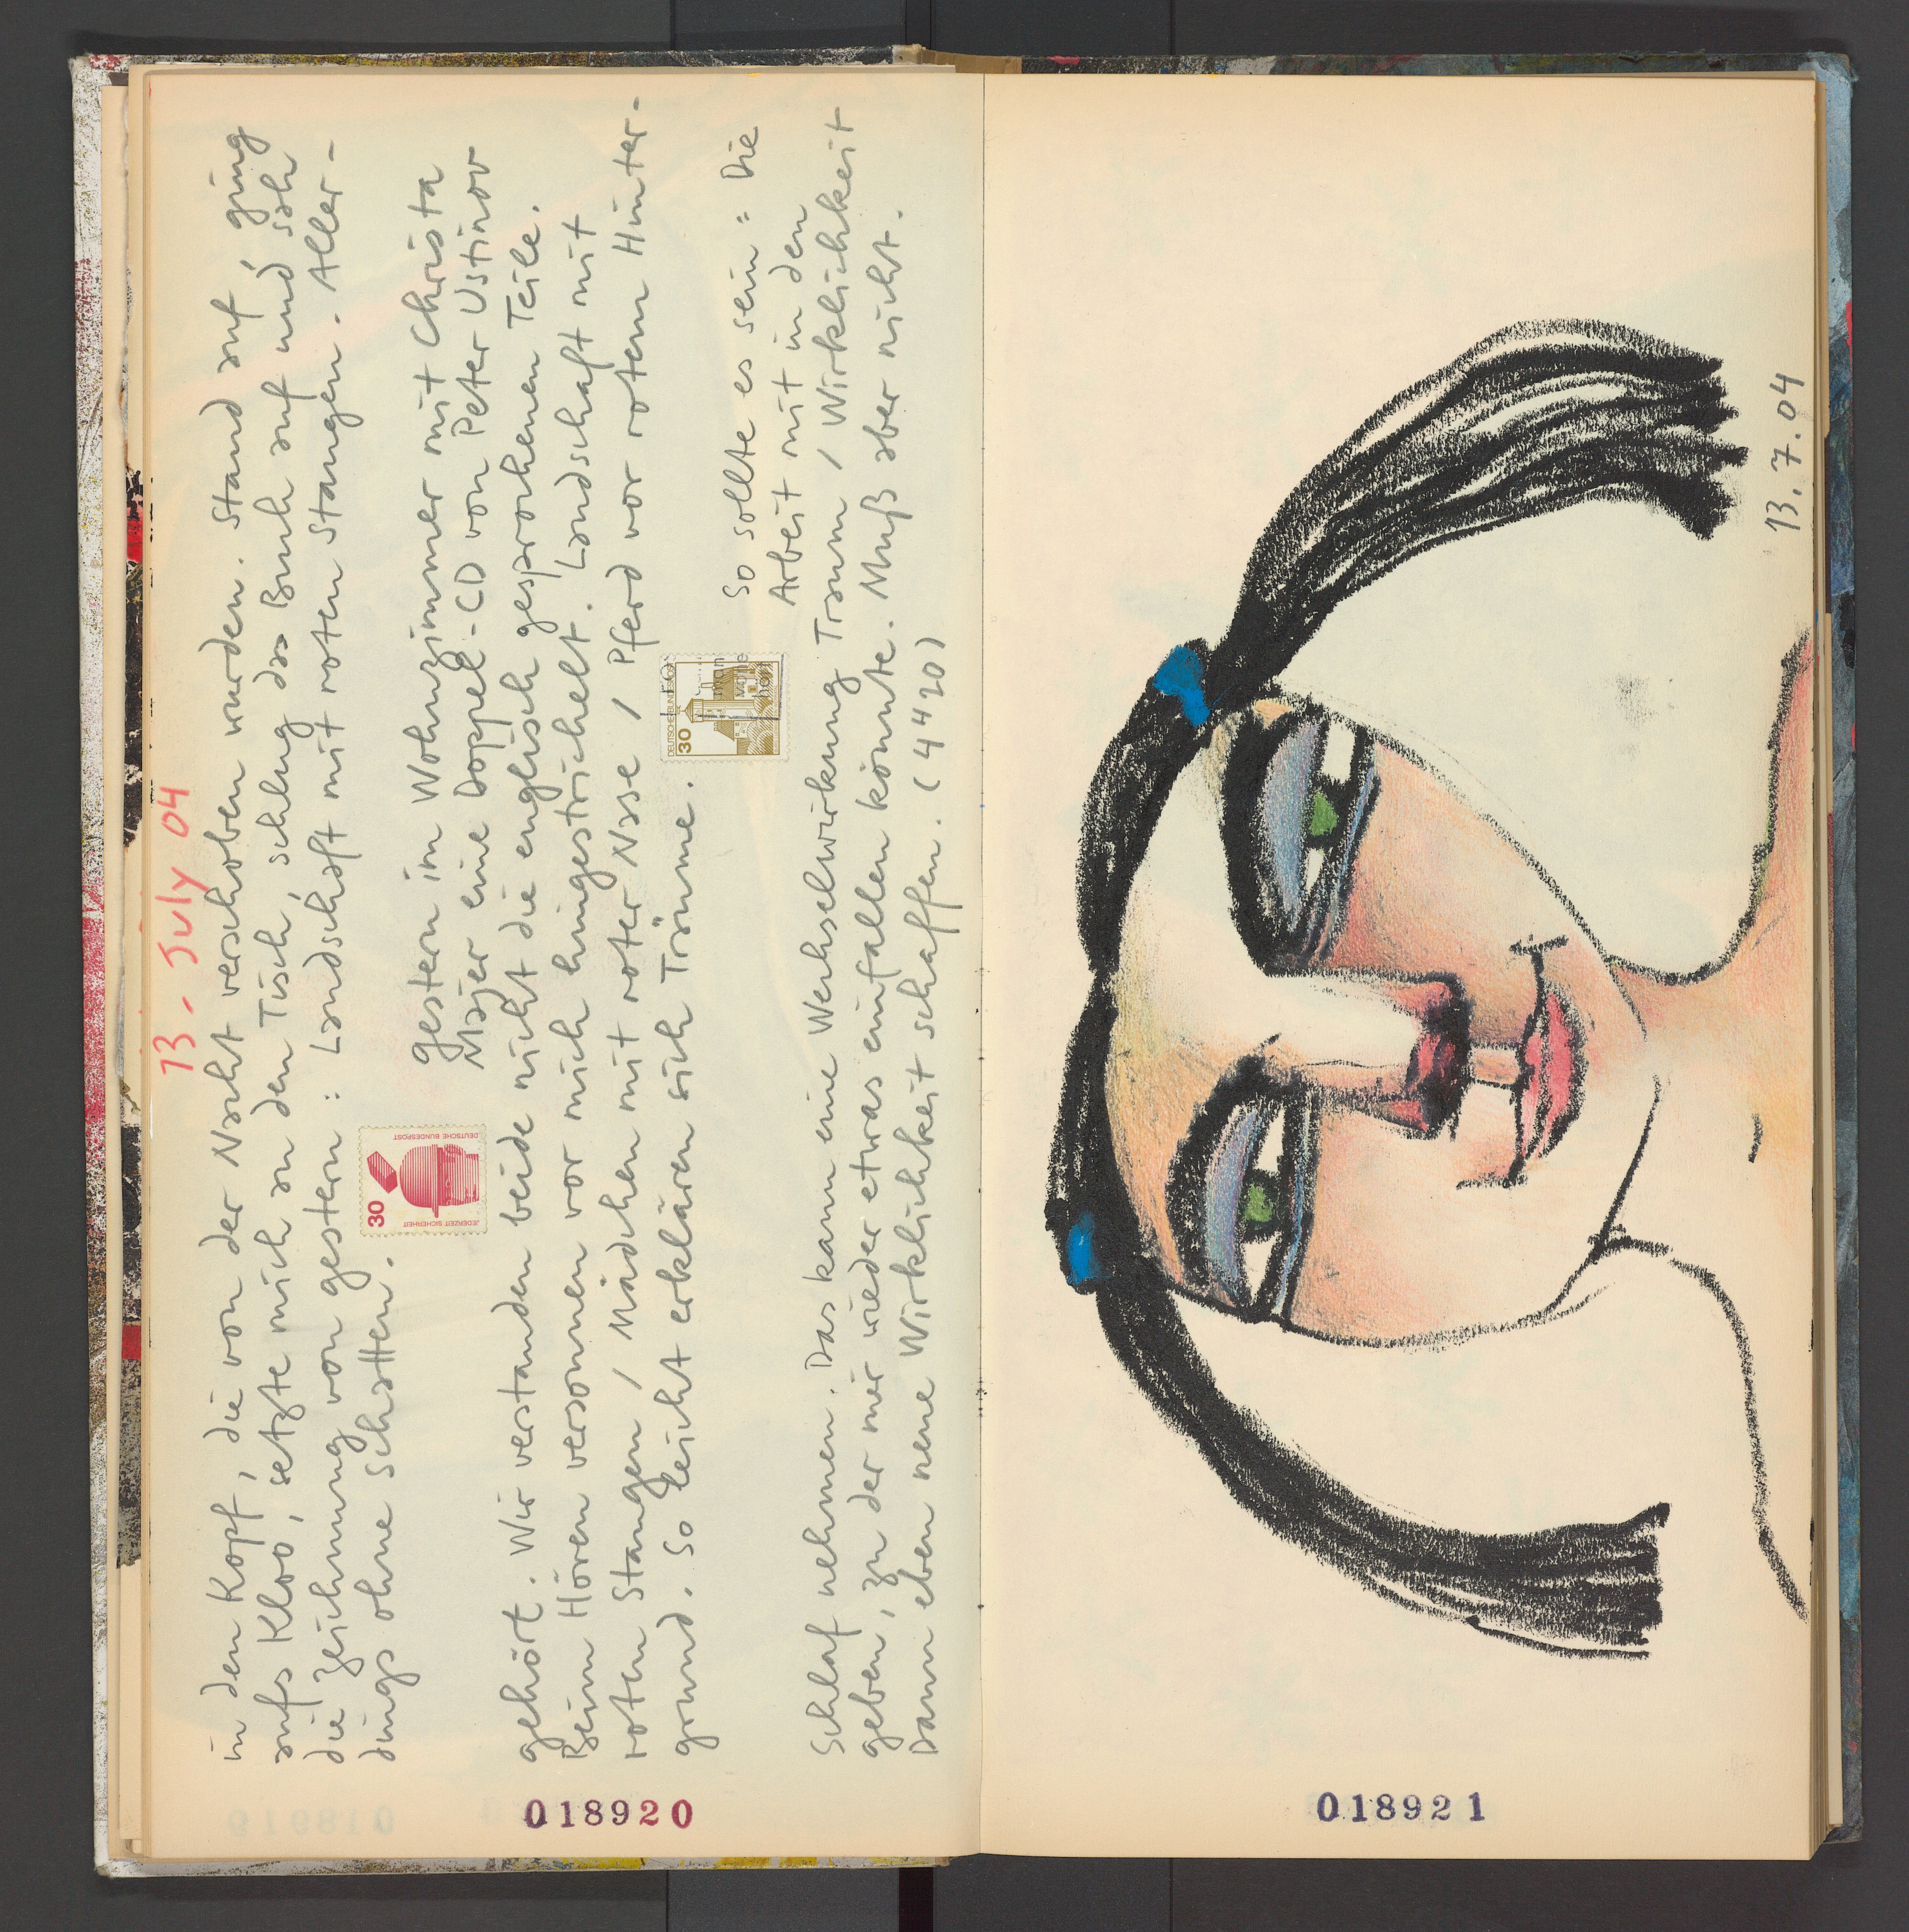 13. July 04
in den Kopf, die von der Nacht verschoben wurden. Stand auf, ging
aufs Kloo, setzte mich an den Tisch, schlug das Buch auf und sah
die Zeichnung von gestern: Landschaft mit roten Stangen. Aller-
dings ohne Schatten.
gestern im Wohnzimmer mit Christa
Majer eine Doppel-CD von Peter Ustinov
gehört. Wir verstanden beide nicht die englisch gesprochenen Teile.
Beim Hören versonnen vor mich hingestrichelt. Landschaft mit
roten Stangen / Mädchen mit roter Nase / Pferd vor rotem Hinter-
grund. So leicht erklären sich Träume.
So sollte es sein: Die
Arbeit mit in den
Schlaf nehmen. Das kann eine Wechselwirkung Traum / Wirklichkeit
geben, zu der mir wieder etwas einfallen könnte. Muß aber nicht.
Dann eben neue Wirklichkeit schaffen. (4420)
30
JEDERZEIT SICHERHEIT
DEUTSCHE BUNDESPOST
DEUTSCHE BUNDESPOST
30
018920
13.7.04
018921